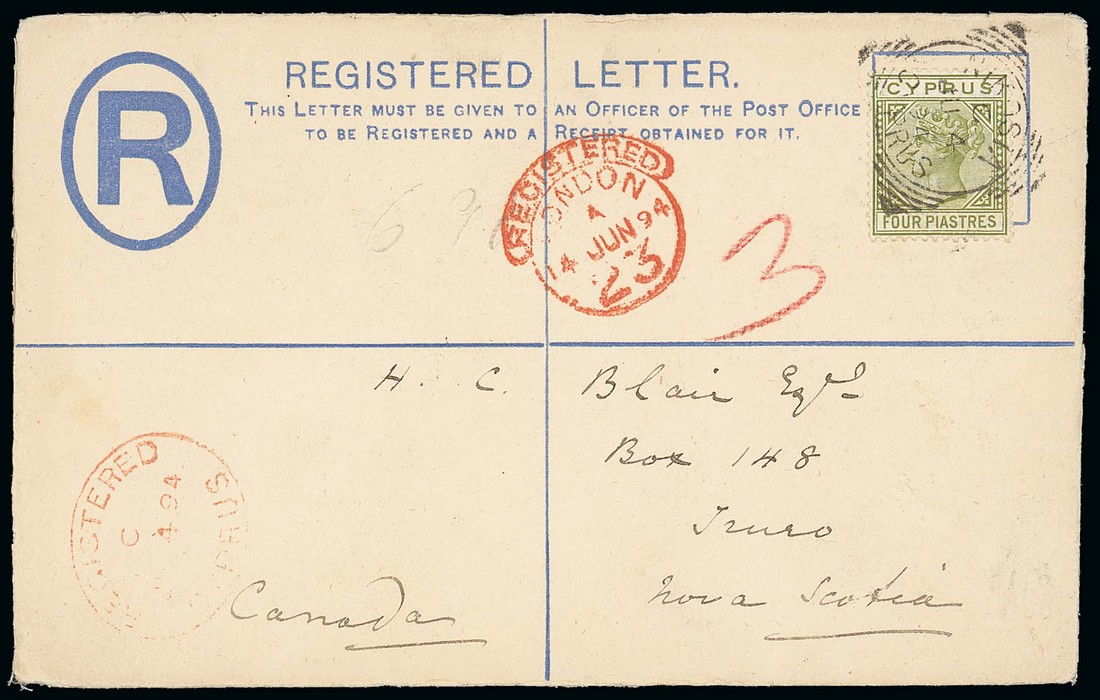 R
REGISTERED LETTER.
THIS LETTER MUST BE GIVEN TO AN OFFICER OF THE POST OFFICE
TO BE REGISTERED AND A RECEIPT OBTAINED FOR IT.
CYPRUS
FOUR PIASTRES
REGISTERED
LONDON
A
14 JUN 94
23
3
H. C. Blair Esqre
Box 148
Truro
Nova Scotia
Canada
REGISTERED
C
4 94
CYPRUS